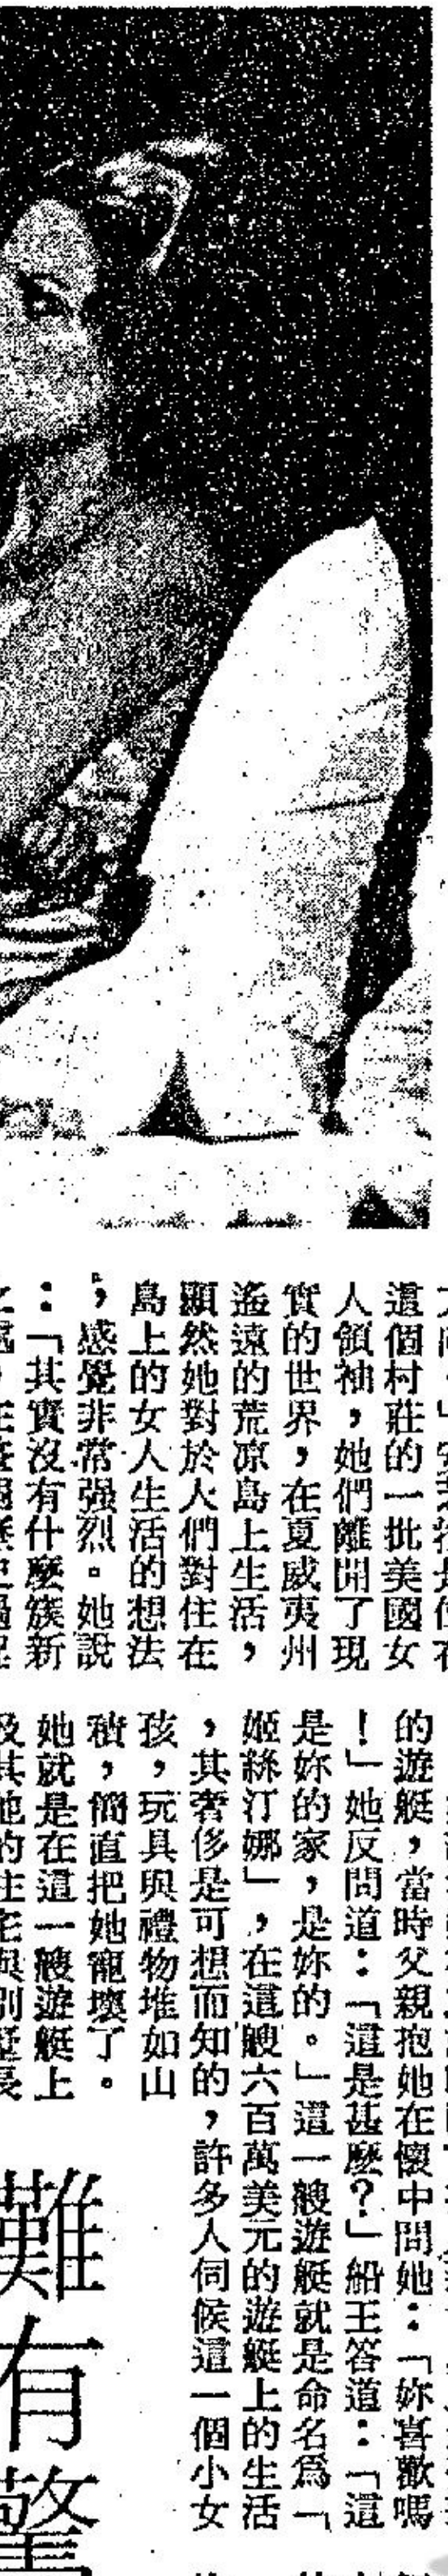 這個村莊的一批美國女
人領袖，她們離開了現
實的世界，在夏威夷州
遙遠的荒凉島上生活，
顯然她對於人們對住在
島上的女人生活的想法
，感覺非常强烈。她說
：「其實沒有什麼簇新
的遊艇，當時父親抱她在懷中問她：「妳喜歡嗎
！」她反問道：「這是甚麼？」船王答道：「這
是妳的家，是妳的。」這一艘遊艇就是命名爲「
姬絲汀娜」，在這艘六百萬美元的遊艇上的生活
，其奢侈是可想而知的，許多人伺候這一個小女
孩，玩具與禮物堆如山
積，簡直把她寵壞了。
她就是在這一艘遊艇上
及其他的住宅與別墅長
難有驚